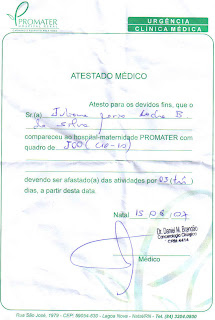 PROMATER
URGÊNCIA
CLÍNICA MÉDICA
ATESTADO MÉDICO
Atesto para os devidos fins, que o
Sr.(a)
da Silva
compareceu ao hospital-maternidade PROMATER com
quadro de J00 (CID-10)
devendo ser afastado(a) das atividades por 03 (três)
dias, a partir desta data.
Natal 15 06 07
Dr. Daniel M. Brandão
CRM 4414
Médico
Rua São José, 1979 - CEP: - Lagoa Nova - Natal/RN - Tel. (84)